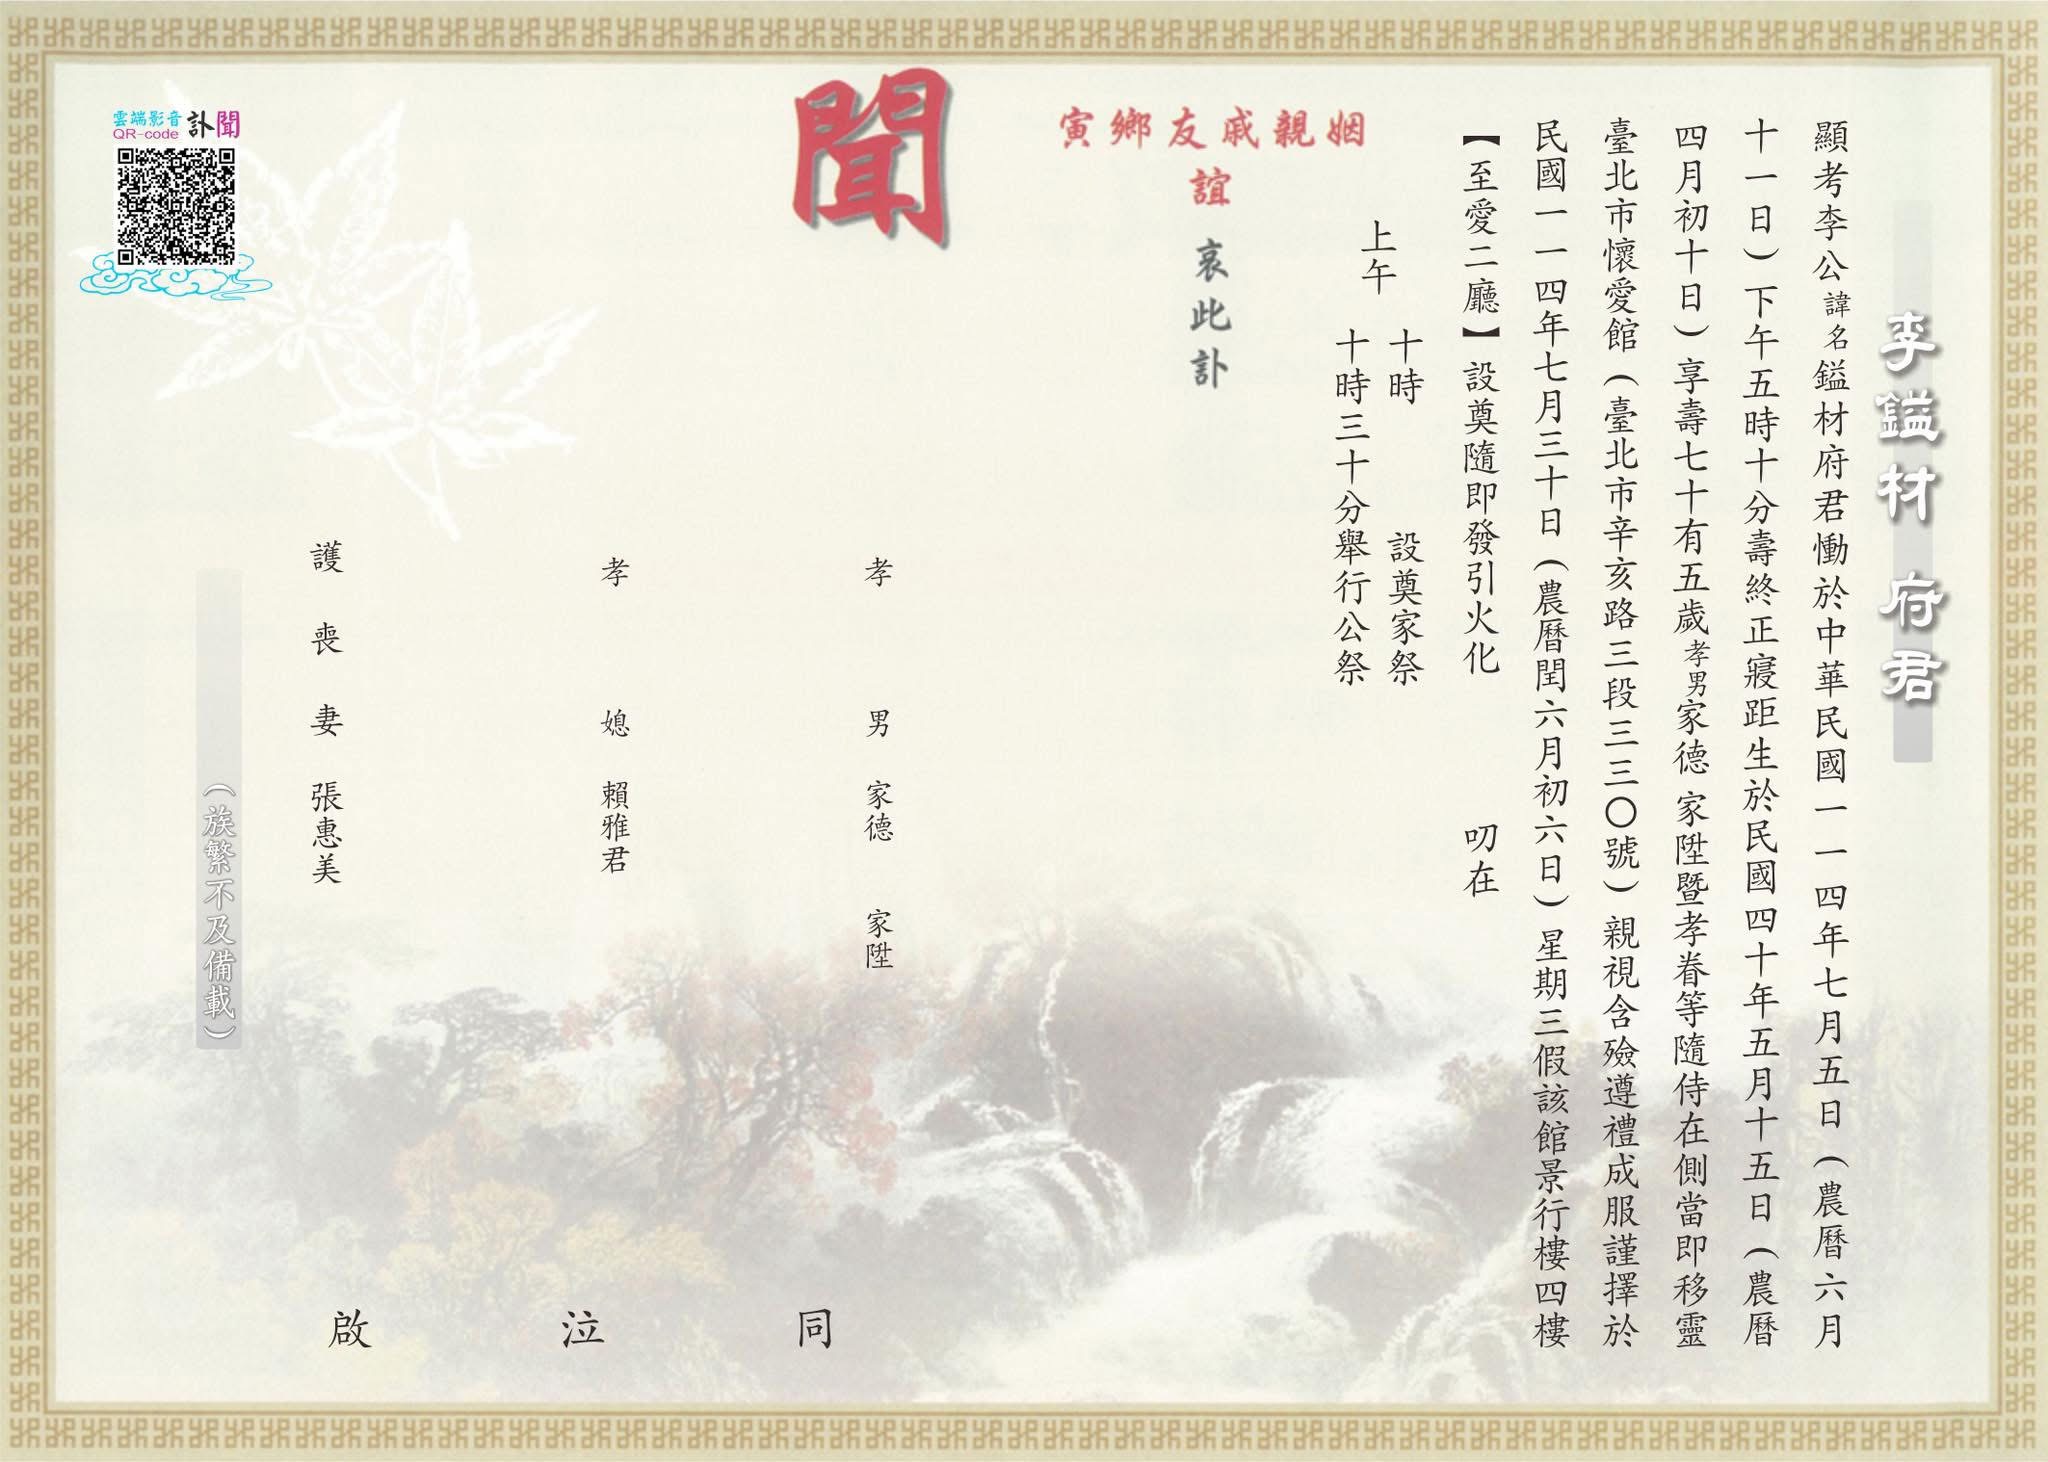 李鎰材 府君
顯考李公諱名鎰材府君慟於中華民國一一四年七月五日（農曆六月
十一日）下午五時十分壽終正寢距生於民國四十年五月十五日（農曆
四月初十日）享壽七十有五歲孝男家德 家陞暨孝眷等隨侍在側當即移靈
臺北市懷愛館（臺北市辛亥路三段三三〇號）親視含殮遵禮成服謹擇於
民國一一四年七月三十日（農曆閏六月初六日）星期三假該館景行樓四樓
【至愛二廳】設奠隨即發引火化 叨在
上午
十時 設奠家祭
十時三十分舉行公祭
姻親戚友鄉寅
誼 哀此訃
聞
孝男 家德 家陞
孝媳 賴雅君
護喪妻 張惠美
同泣啟
（族繁不及備載）
雲端影音
QR-code 訃聞